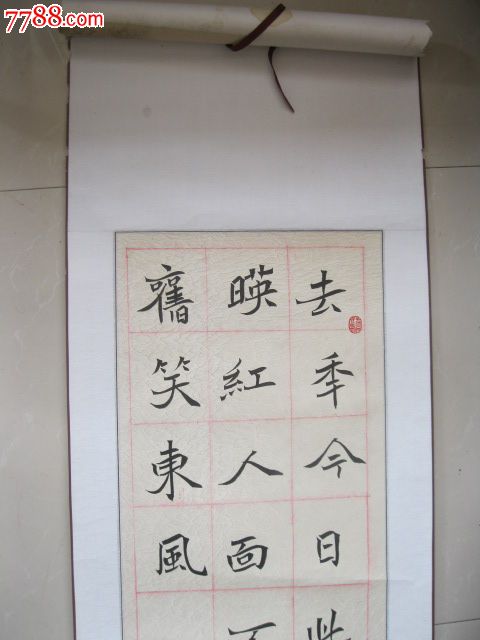 7788.com
去秊今日此
暎紅人面不
舊笑東風